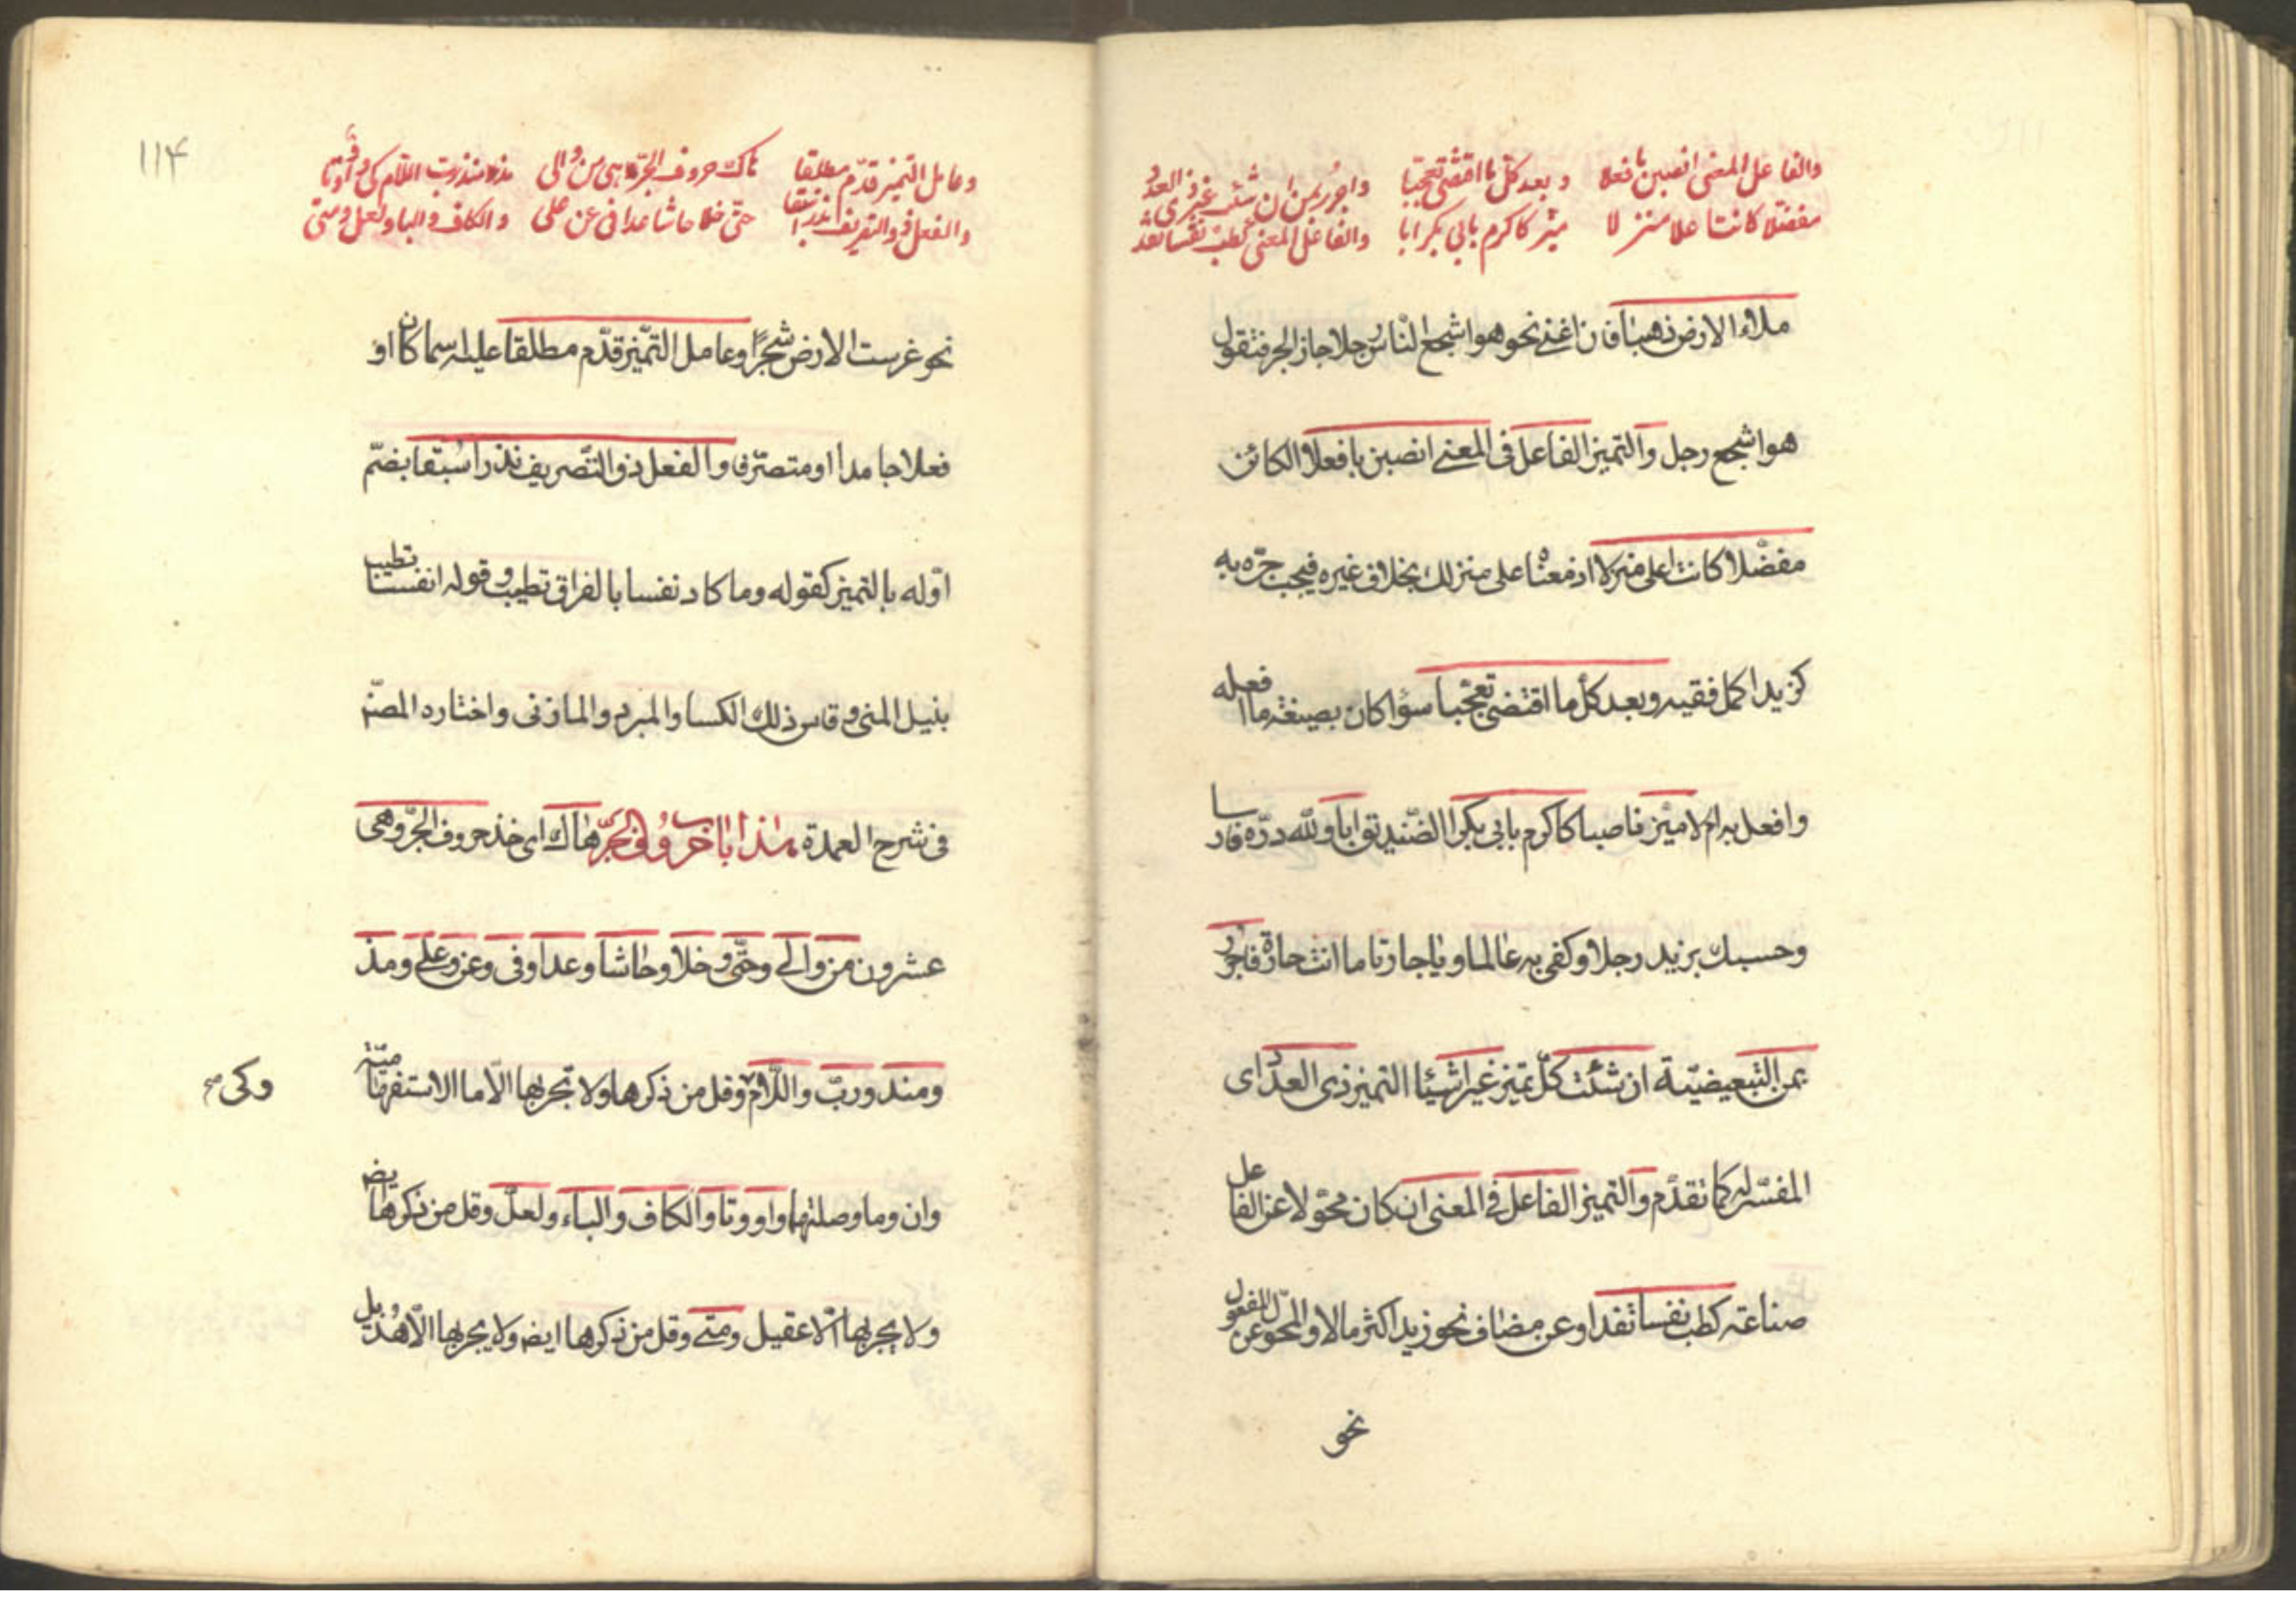 والفاعل المعنى انصبن بافعلا وبعد كل ما اقتضى تعجبا واجرر بمن ان شئت غير ذى العدد
مفضلا كانت اعلا منزلا ميّز كاكرم بابى بكر ابا والفاعل المعنى كطب نفسا تفد
ملاء الارض ذهبا فان اغنى نحو هو اشجع الناس رجلا جاز الجر فتقول
هو اشجع رجل والتميز الفاعل فى المعنى انصبن بافعلا الكائن
مفضّلا كانت اعلى منزلا اذ معناه على منزلك بخلاف غيره فيجب جرّه به
كزيد اكمل فقيه وبعد كل ما اقتضى تعجّبا سؤا كان بصيغة ما افعله
وافعل به ام لا ميّز ناصبا كاكرم بابى بكر الصّديق ابا ولله درّه فارسا
وحسبك بزيد رجلا وكفى به عالما و يا جارتا ما انت جارة فاجرر
بمن التبعيضيّة ان شئت كلّ تميز غير اشيئا التميز ذى العدد اى
المفسّر له كما تقدّم والتميز الفاعل فى المعنى ان كان محوّلا عن الفاعل
صناعة كطب نفسا تفد او عن مضاف نحو زيد اكثر مالا والمحوّل عن المفعول
نحو
١١٤
وعامل التميز قدّم مطلقا هاك حروف الجر وهى من والى مذ منذ رب اللام كى واو وتا
والفعل ذو التصريف نذرا سبقا حتى خلا حاشا عدا فى عن على والكاف والبا ولعل ومتى
نحو غرست الارض شجرًا وعامل التّميز قدّم مطلقا عليه اسما كان او
فعلا جامدا او متصرّفا والفعل ذو التّصريف نذرا سُبقا بضمّ
اوّله بالتميز كقوله وما كاد نفسا بالفراق تطيب وقوله انفسا تطيب
بنيل المنى وقاس ذلك الكسا والمبرد والمازنى واختاره المصنّ
فى شرح العمدة هذا باب حروف الجرّ هاك اى خذ حروف الجرّ وهى
عشرون من والى وحتّى وخلا وحاشا وعدا وفى وعن وعلى ومذ
ومنذ وربّ واللّام وقل من ذكرها ولا تجر بها الّا ما الاستفهاميّة
وكى صح
وان وما وصلتهما واو وتا والكاف والباء ولعلّ وقل من ذكرها ايضه
ولا يجر بها الّا عقيل ومتى وقل من ذكرها ايضه ولا يجر بها الّا هُذيل